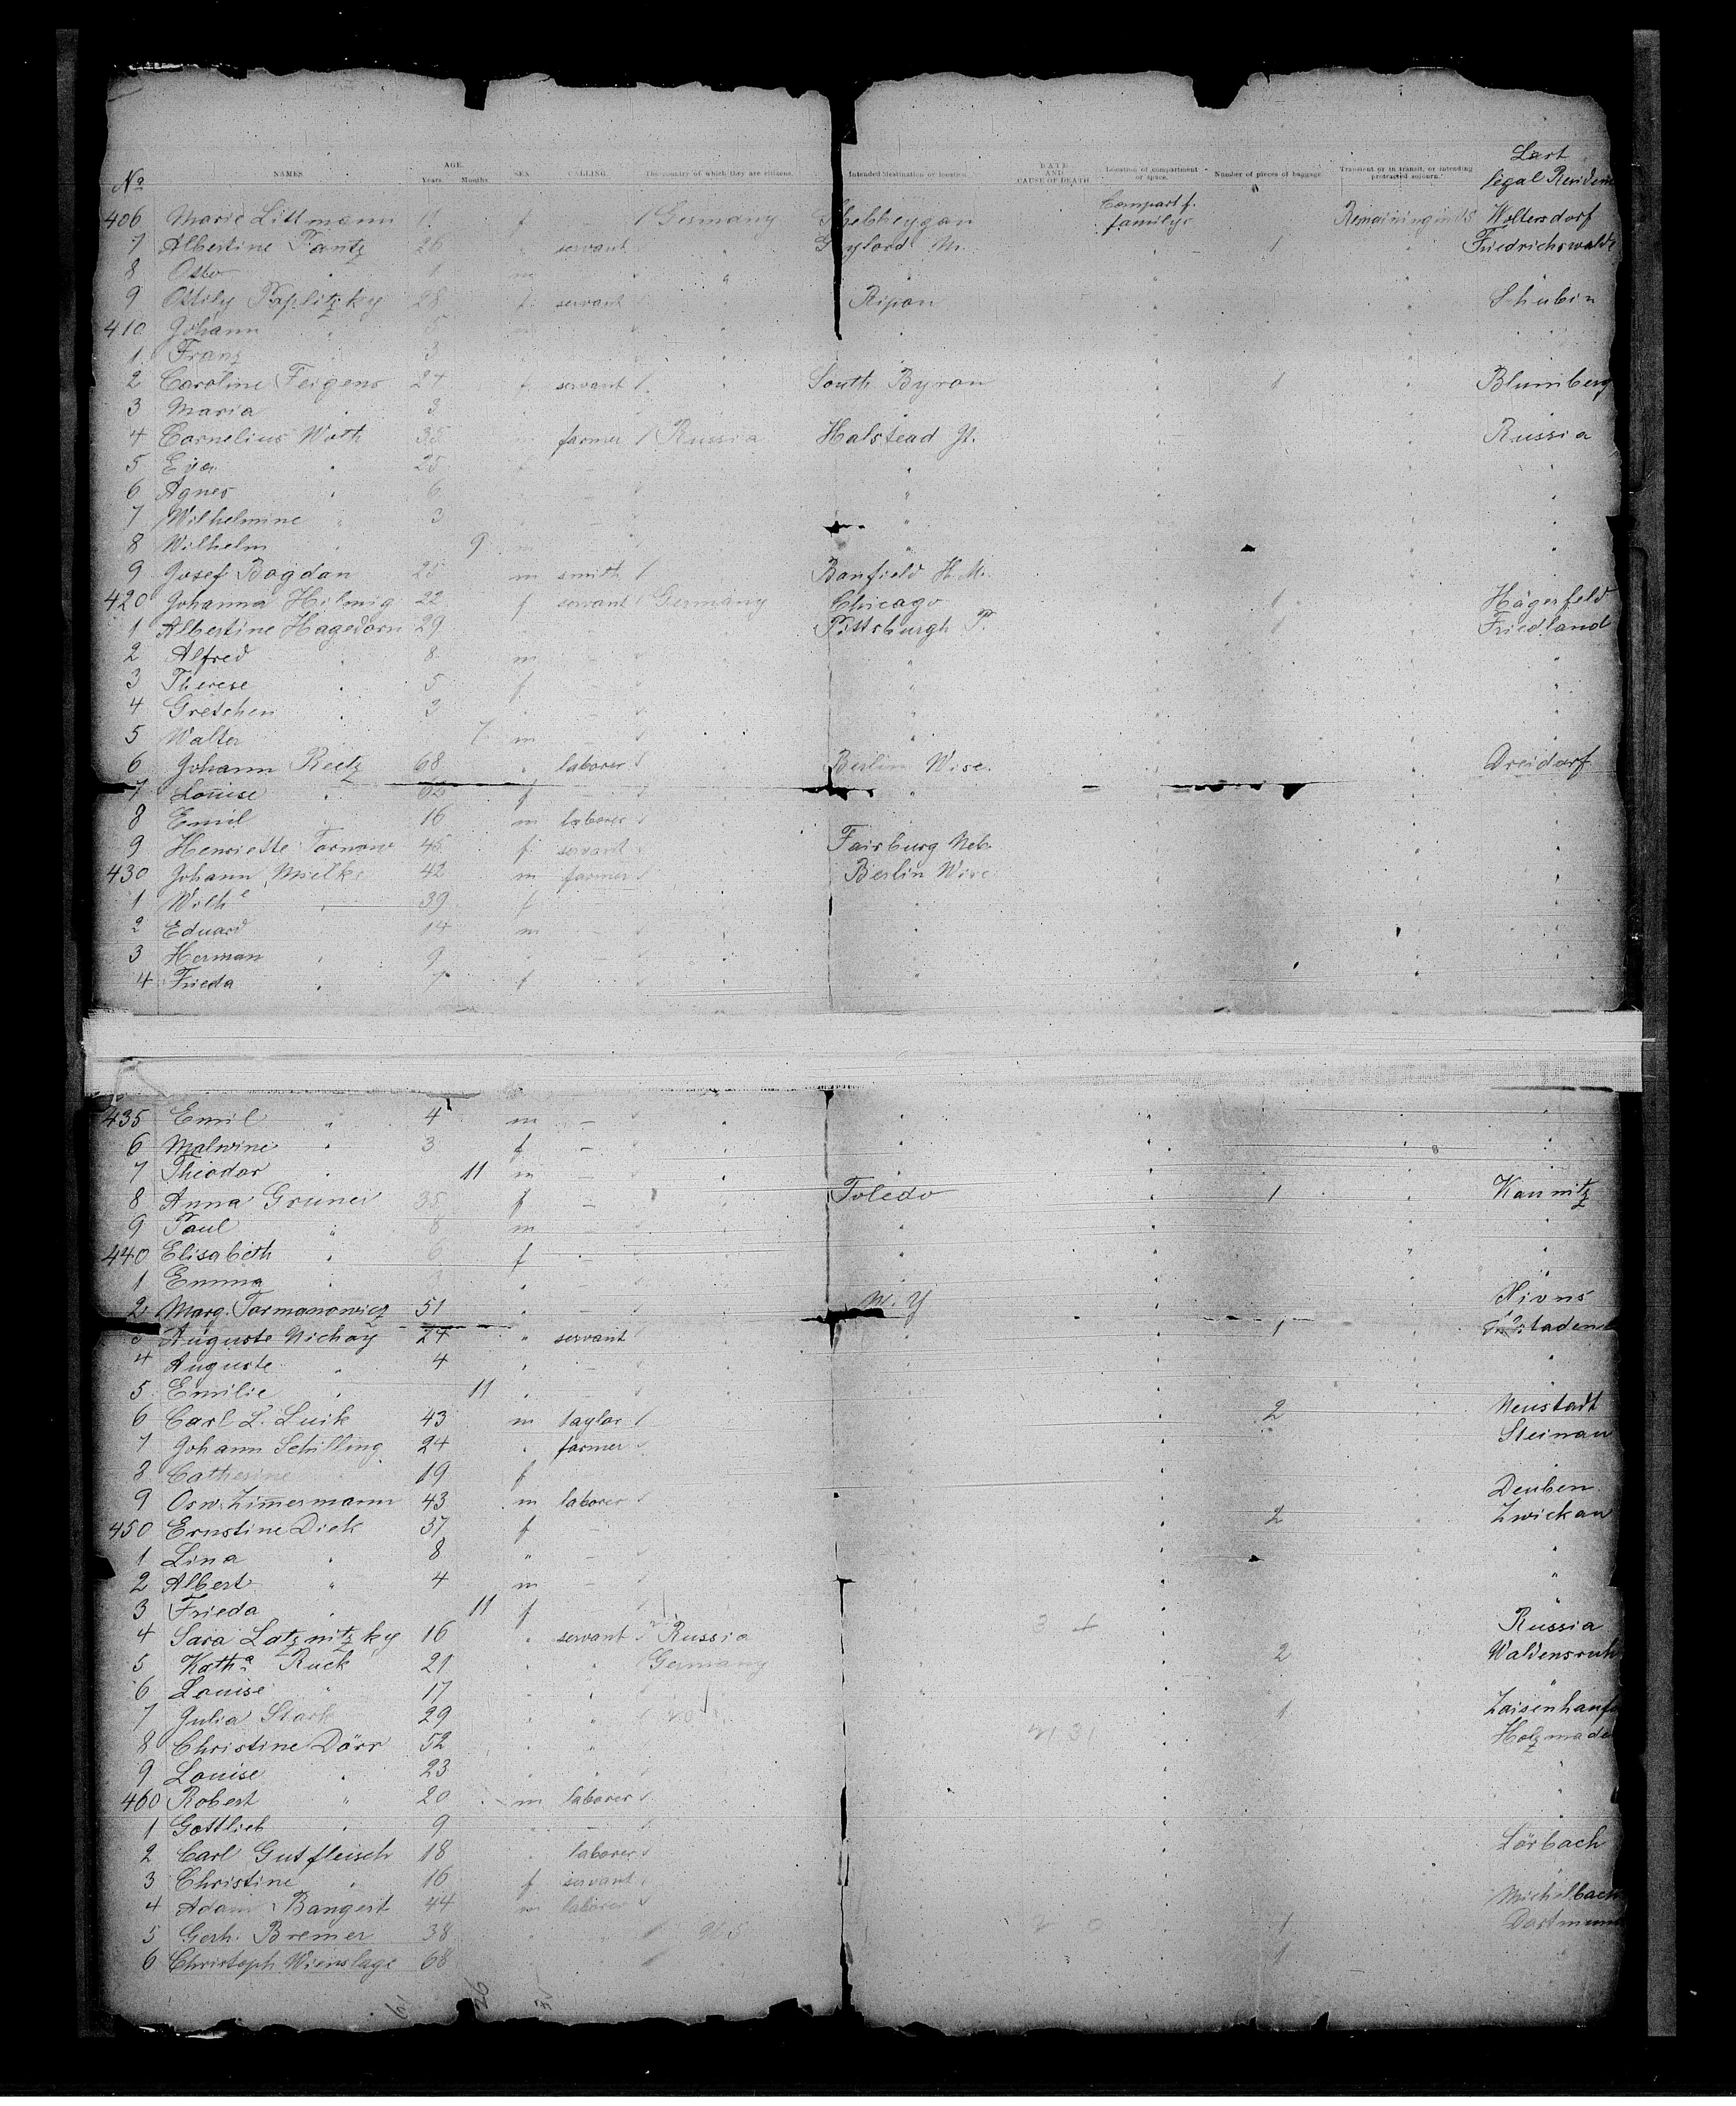 No NAMES. AGE. Years. Months. SEX. CALLING. The country of which they are citizens. Intended destination or location. DATE AND CAUSE OF DEATH Location of compartment or space. Number of pieces of baggage Transient or in transit, or intending protracted sojourn. Last legal Residence
406 Marie Littmann 11 f Germany Shebheygan Compart f. familys Remaining in US Woltersdorf
7 Albertine Fantz 26 " servant " Gylord M. 1 Friedrichswalde
8 Otto " 1 m "
9 Ottily Paplitzky 28 f servant Ripon Schubin
410 Johann " 5 m "
1 Franz 3
2 Caroline Feigens 24 f servant South Byron 1 Blumberg
3 Maria " 3
4 Cornelius Woth 35 m farmer Russia Halstead Russia
5 Eva " 25 f - "
6 Agnes " 6 "
7 Wilhelmine " 3 - "
8 Wilhelm " 9 m "
9 Josef Bogdan 25 m smith Banfield
420 Johanna Helmig 22 f servant Germany Chicago 1 Hägerfeld
1 Albertine Hagedorn 29 Pittsburgh P. 1 Friedland
2 Alfred " 8 m - "
3 Therese " 5 f - "
4 Gretchen " 3 - "
5 Walter 7 m - "
6 Johann Reetz 68 " laborer Berlin Wisc. Dreidorf
7 Louise " 62 f - "
8 Emil 16 m laborer "
9 Henriette Tornow 45 f servant Fairburg Neb.
430 Johann Mielke 42 m farmer Berlin Wisc
1 Wilhe " 39 f "
2 Eduard 14 m - "
3 Herman " 9 " - "
4 Frieda " 7 f "
435 Emil " 4 m - "
6 Malwine " 3 f - "
7 Theodor " 11 m - "
8 Anna Gruner 35 f - Toledo 1 Kaunitz
9 Paul " 8 m - "
440 Elisabeth " 6 f - "
1 Emma " "
2 Marg. Tormanowicz 51 " - N. Y
3 Auguste Nichoy 24 " servant 1
4 Auguste " 4 " -
5 Emilie " 11 " -
6 Carl L. Luik 43 m taylor 2 Neustadt
7 Johann Schilling 24 " farmer Steinau
8 Catherine 19 f
9 Osw. Zimmermann 43 m laborer Deuben
450 Ernstine Dick 37 f - 2 Zwickau
1 Lina " 8 " - "
2 Albert " 4 m - "
3 Frieda " 11 f - "
4 Sara Latznitzky 16 " servant Russia Russia
5 Katha Ruck 21 " " Germany 2 Waldensruh
6 Louise " 17 " " "
7 Julia Stark 29 " " 1 Zaisenhauf
8 Christine Dörr 52 " " Holzmade
9 Louise " 23 " " "
460 Robert " 20 m laborer "
1 Gottlieb " 9 " - "
2 Carl Gutfleisch 18 " laborer Lörbach
3 Christine " 16 f servant "
4 Adam Bangert 44 m laborer Michelbach
5 Gerh. Bremer 38 " " 1 Dortmund
6 Christoph Wienslage 68 " " 1
26